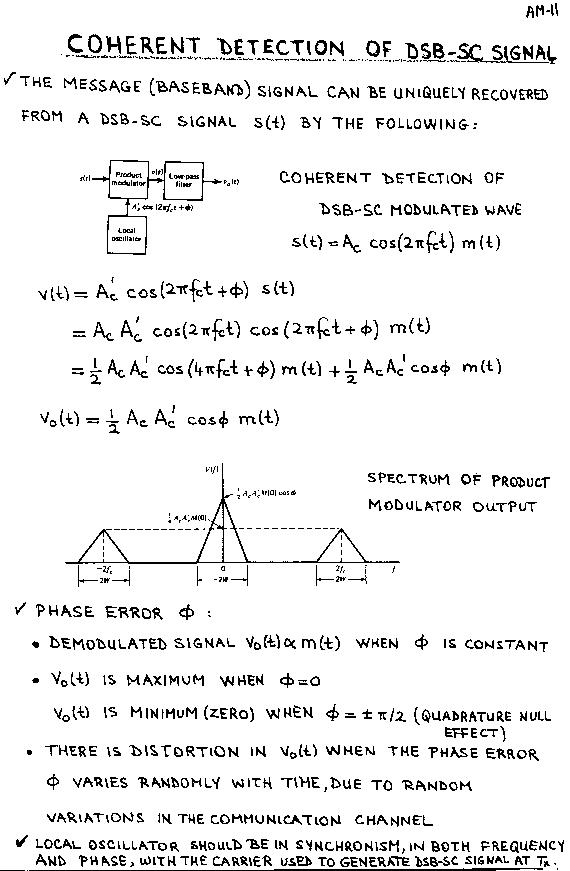 AM-11
COHERENT DETECTION OF DSB-SC SIGNAL
✓ THE MESSAGE (BASEBAND) SIGNAL CAN BE UNIQUELY RECOVERED
FROM A DSB-SC SIGNAL S(t) BY THE FOLLOWING:
s(t) Product modulator v(t) Low-pass filter v₀(t)
A'c cos (2πfct + ϕ)
Local oscillator
COHERENT DETECTION OF
DSB-SC MODULATED WAVE
s(t) = Ac cos(2πfct) m(t)
v(t) = Ac' cos(2πfct + ϕ) s(t)
= Ac Ac' cos(2πfct) cos(2πfct + ϕ) m(t)
= 1/2 Ac Ac' cos(4πfct + ϕ) m(t) + 1/2 Ac Ac' cosϕ m(t)
Vo(t) = 1/2 Ac Ac' cosϕ m(t)
V(f)
1/2 AcAc'M(0) cos ϕ
1/4 AcAc'M(0)
SPECTRUM OF PRODUCT
MODULATOR OUTPUT
-2fc 0 2fc f
2W 2W 2W
✓ PHASE ERROR ϕ :
• DEMODULATED SIGNAL Vo(t) ∝ m(t) WHEN ϕ IS CONSTANT
• Vo(t) IS MAXIMUM WHEN ϕ=0
Vo(t) IS MINIMUM (ZERO) WHEN ϕ = ± π/2 (QUADRATURE NULL
EFFECT)
• THERE IS DISTORTION IN Vo(t) WHEN THE PHASE ERROR
ϕ VARIES RANDOMLY WITH TIME, DUE TO RANDOM
VARIATIONS IN THE COMMUNICATION CHANNEL
✓ LOCAL OSCILLATOR SHOULD BE IN SYNCHRONISM, IN BOTH FREQUENCY
AND PHASE, WITH THE CARRIER USED TO GENERATE DSB-SC SIGNAL AT Tx.